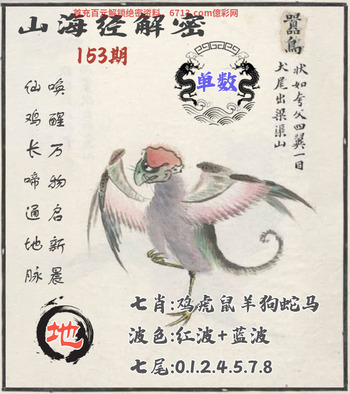 首充百元解锁绝密资料、6713.com億彩网
山海经解密
153期
单数
嚣鸟
状如夸父四翼一目
犬尾出梁渠山
唤醒万物启新晨
仙鸡长啼通地脉
地
七肖:鸡虎鼠羊狗蛇马
波色:红波+蓝波
七尾:0.1.2.4.5.7.8